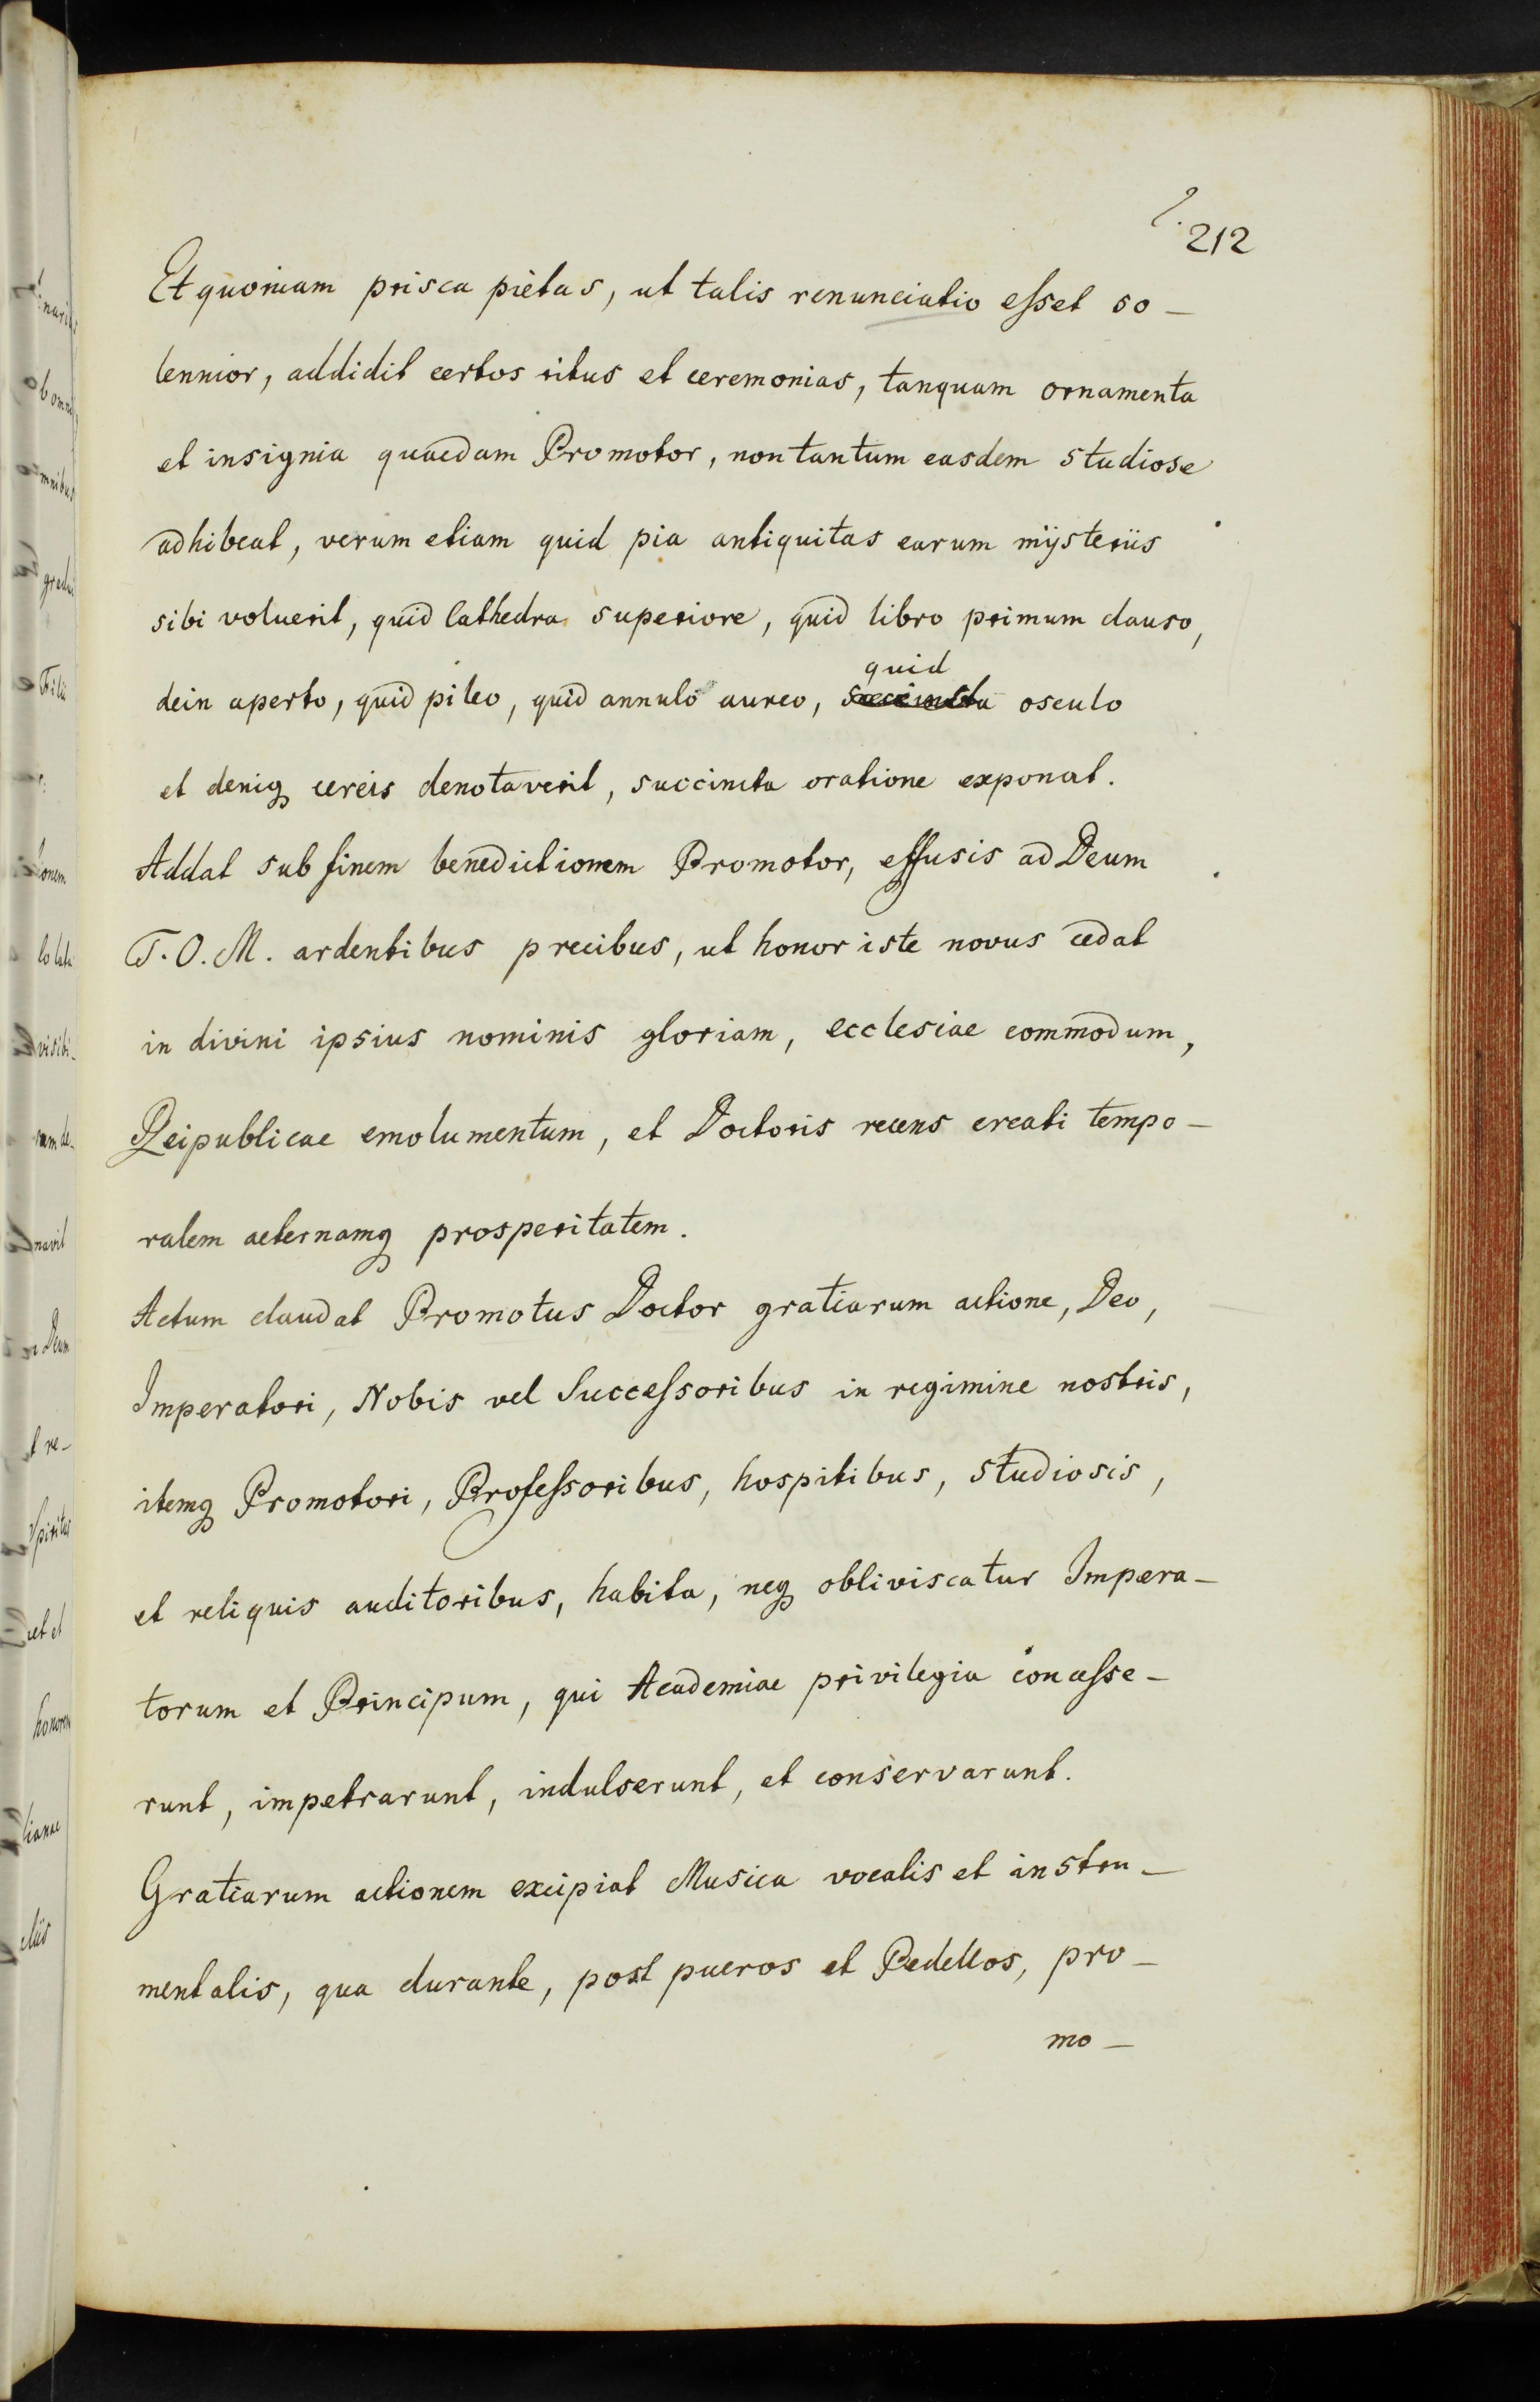 212
Et quoniam prisca pietas, ut talis renunciatio esset so-
lennior, addidit certos ritus et ceremonias, tanquam ornamenta
et insignia quaedam Promotor, non tantum easdem studiose
adhibeat, verum etiam quid pia antiquitas earum mÿsteriis
sibi voluerit, quid Cathedra superiore, quid libro primum clauso,
dein aperto, quid pileo, quid annulo aureo, quid osculo
et deniq cereis denotaverit, succincta oratione exponat.
Addat sub finem benedictionem Promotor, effusis ad Deum
T.O.M. ardentibus precibus, ut honor iste novus cedat
in divini ipsius nominis gloriam, ecclesiae commodum,
Reipublicae emolumentum, et Doctoris recens creati tempo-
ralem aeternamq prosperitatem.
Actum claudat Promotus Doctor gratiarum actione, Deo,
Imperatori, Nobis vel Successoribus in regimine nostris,
itemq Promotori, Professoribus, hospitibus, studiosis,
et reliquis auditoribus, habita, neq obliviscatur Impera-
torum et Principum, qui Academiae privilegia concesse-
runt, impetrarunt, indulserunt, et conservarunt.
Gratiarum actionem excipiat Musica vocalis et instru-
mentalis, qua durante, post pueros et Pedellos, pro-
mo-